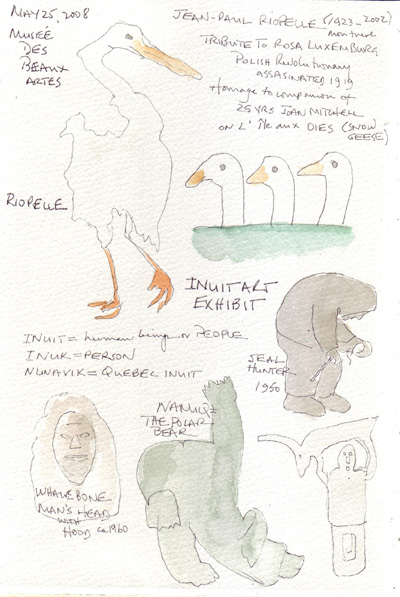 MAY 25, 2008
MUSÉE
DES
BEAUX
ARTES
JEAN-PAUL RIOPELLE (1923-2002)
montreal
TRIBUTE TO ROSA LUXEMBURG
POLISH Revolutionary
ASSASINATED 1919
+ homage to companion of
25 YRS JOAN MITCHELL
ON L' île aux OIES (SNOW
GEESE)
RIOPELLE
INUIT ART
EXHIBIT
INUIT = human being or PEOPLE
INUK = PERSON
NUNAVIK = QUEBEC INUIT
SEAL
HUNTER
1950
NANUQ =
THE POLAR
BEAR
WHALEBONE
MAN'S HEAD
WITH
HOOD ca 1960